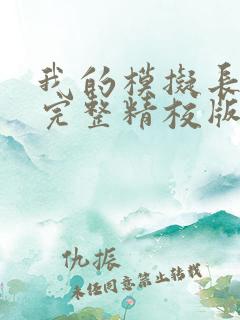 我的模拟长
完整精校版
仇振
未经同意禁止转载